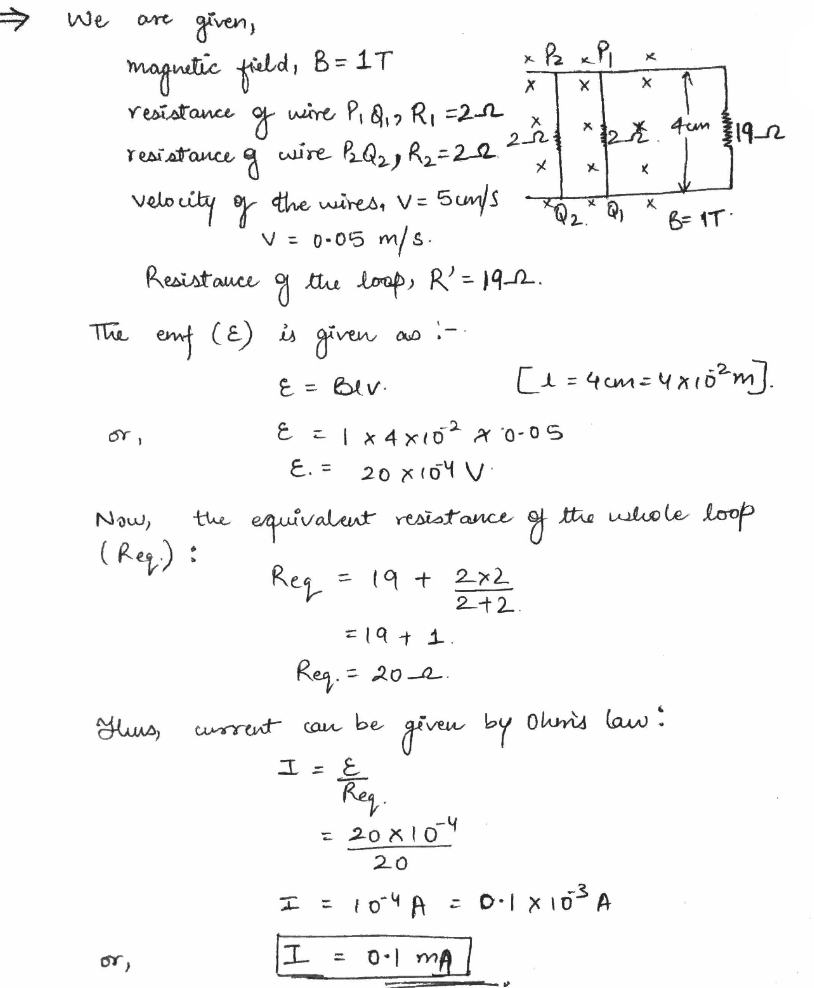 ⇒ We are given,
magnetic field, B = 1T
resistance of wire P₁Q₁, R₁ = 2Ω
resistance of wire P₂Q₂, R₂ = 2Ω.
velocity of the wires, V = 5cm/s
V = 0.05 m/s.
Resistance of the loop, R' = 19Ω.
× P₂ × P₁ ×
× × ×
2Ω × × 2Ω × 4cm 19Ω
× × ×
× Q₂ × Q₁ × B = 1T.
The emf (ε) is given as :-
ε = Blv. [l = 4cm = 4×10⁻²m].
or, ε = 1 × 4×10⁻² × 0.05
ε. = 20 × 10⁻⁴ V.
Now, the equivalent resistance of the whole loop
(Req.) :
Req = 19 + 2×2
2+2.
= 19 + 1.
Req. = 20Ω.
Thus, current can be given by Ohm's law :
I = ε
Req.
= 20 × 10⁻⁴
20
I = 10⁻⁴ A = 0.1 × 10⁻³ A
or, I = 0.1 mA